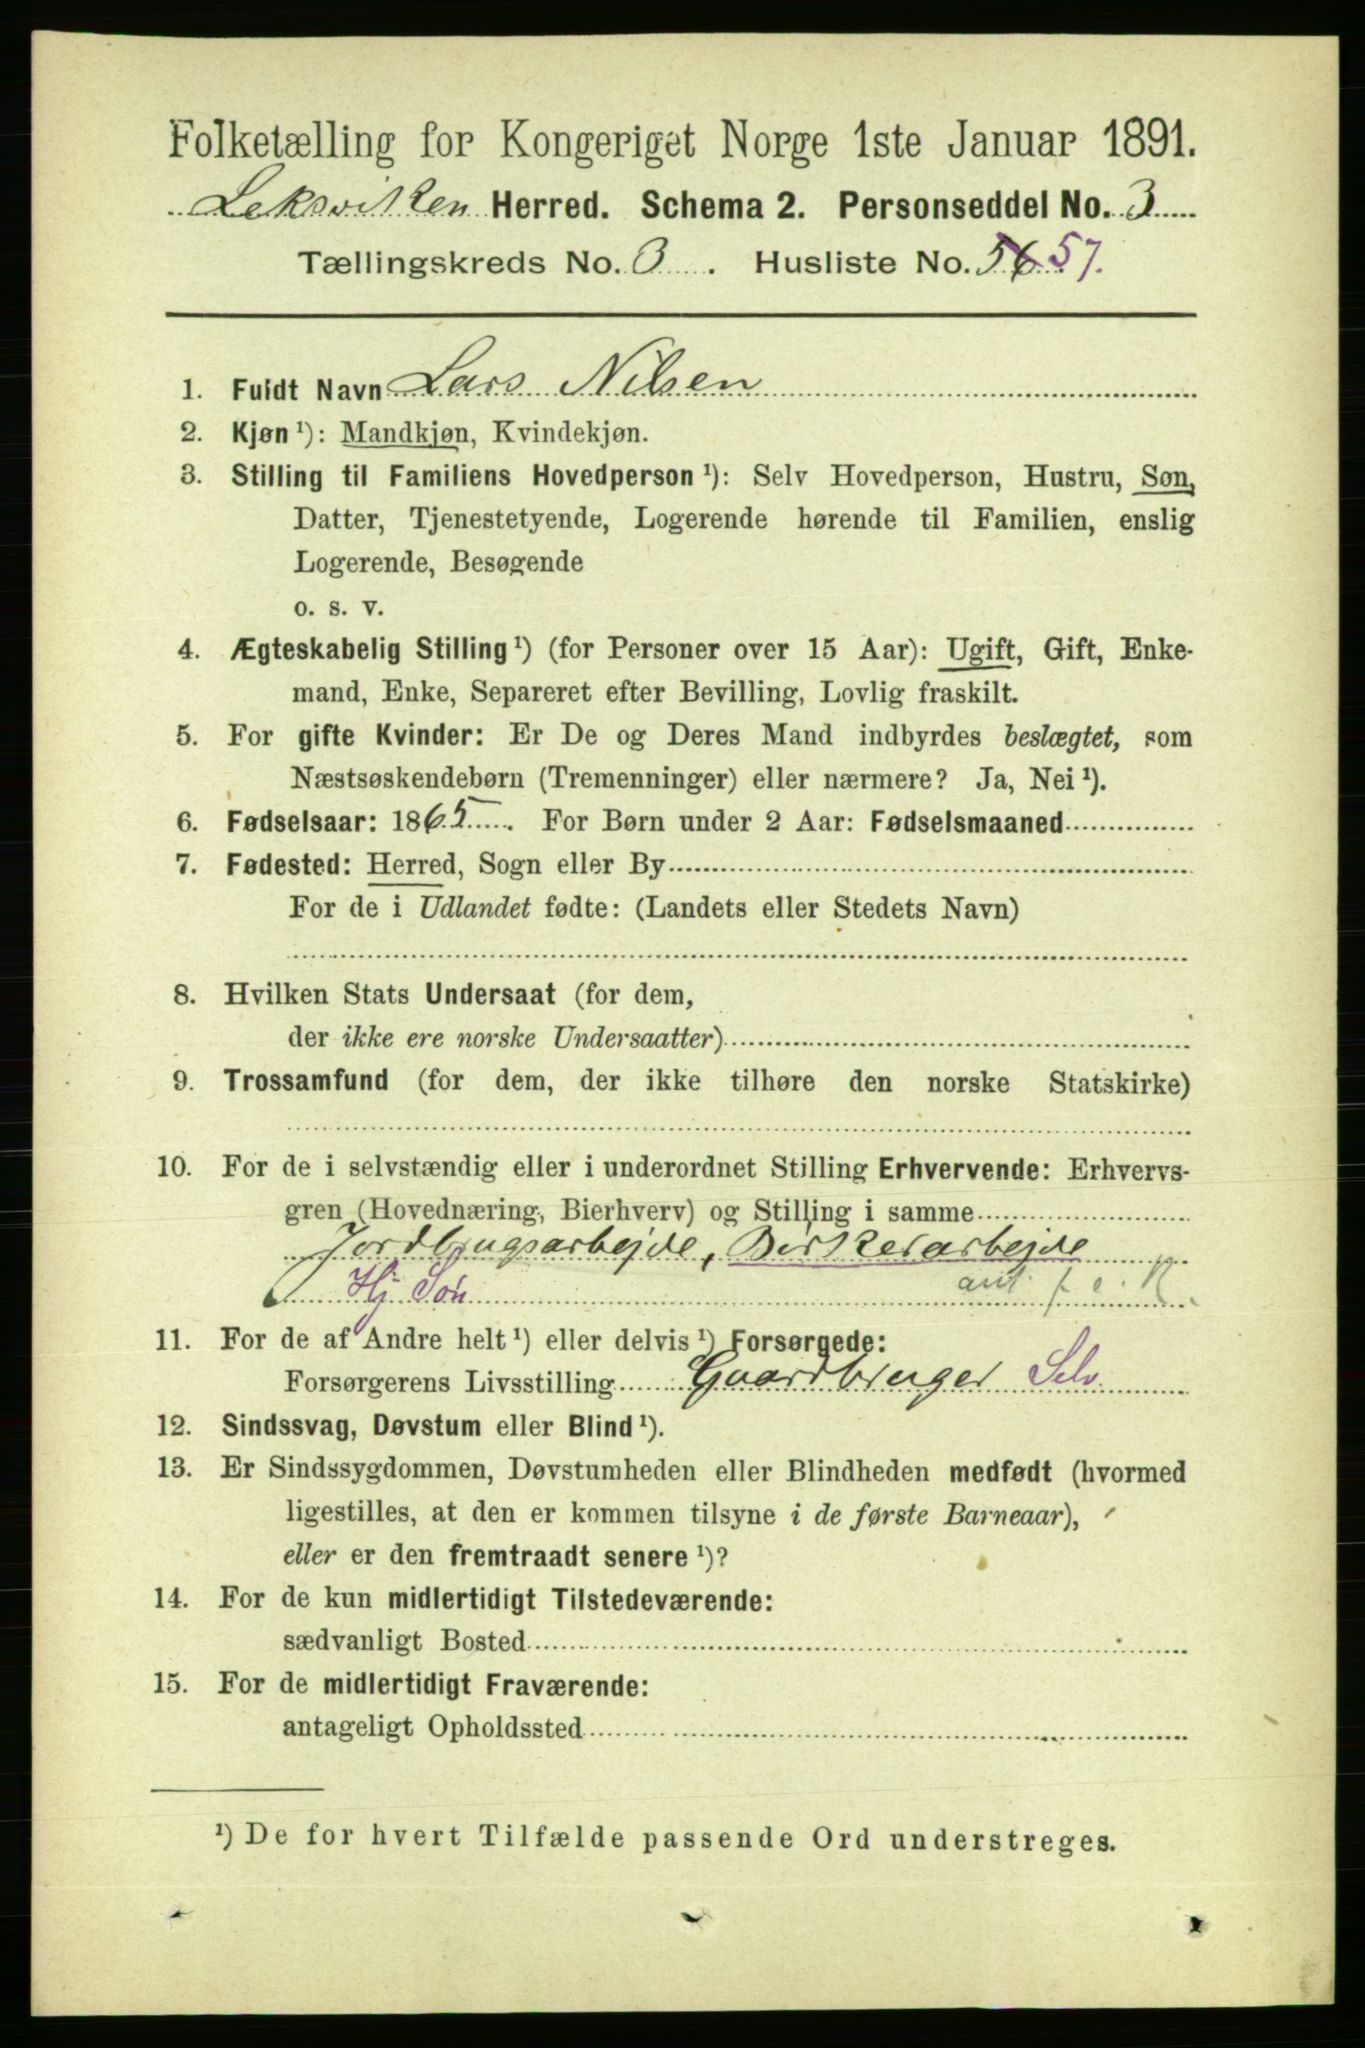 Folketælling for Kongeriget Norge 1ste Januar 1891.
Leksviken Herred. Schema 2. Personseddel No. 3
Tællingskreds No. 3. Husliste No. 56 57.
1. Fuldt Navn Lars Nilsen
2. Kjøn ¹): Mandkjøn, Kvindekjøn.
3. Stilling til Familiens Hovedperson ¹): Selv Hovedperson, Hustru, Søn,
Datter, Tjenestetyende, Logerende hørende til Familien, enslig
Logerende, Besøgende
o. s. v.
4. Ægteskabelig Stilling ¹) (for Personer over 15 Aar): Ugift, Gift, Enke-
mand, Enke, Separeret efter Bevilling, Lovlig fraskilt.
5. For gifte Kvinder: Er De og Deres Mand indbyrdes beslægtet, som
Næstsøskendebørn (Tremenninger) eller nærmere? Ja, Nei ¹).
6. Fødselsaar: 1865. For Børn under 2 Aar: Fødselsmaaned
7. Fødested: Herred, Sogn eller By
For de i Udlandet fødte: (Landets eller Stedets Navn)
8. Hvilken Stats Undersaat (for dem,
der ikke ere norske Undersaatter)
9. Trossamfund (for dem, der ikke tilhøre den norske Statskirke)
10. For de i selvstændig eller i underordnet Stilling Erhvervende: Erhvervs-
gren (Hovednæring, Bierhverv) og Stilling i samme
Jordbrugsarbejde, Dirkerarbejde
Hj Søn
11. For de af Andre helt ¹) eller delvis ¹) Forsørgede:
Forsørgerens Livsstilling Gaardbruger Selv
12. Sindssvag, Døvstum eller Blind ¹).
13. Er Sindssygdommen, Døvstumheden eller Blindheden medfødt (hvormed
ligestilles, at den er kommen tilsyne i de første Barneaar),
eller er den fremtraadt senere ¹)?
14. For de kun midlertidigt Tilstedeværende:
sædvanligt Bosted
15. For de midlertidigt Fraværende:
antageligt Opholdssted
¹) De for hvert Tilfælde passende Ord understreges.